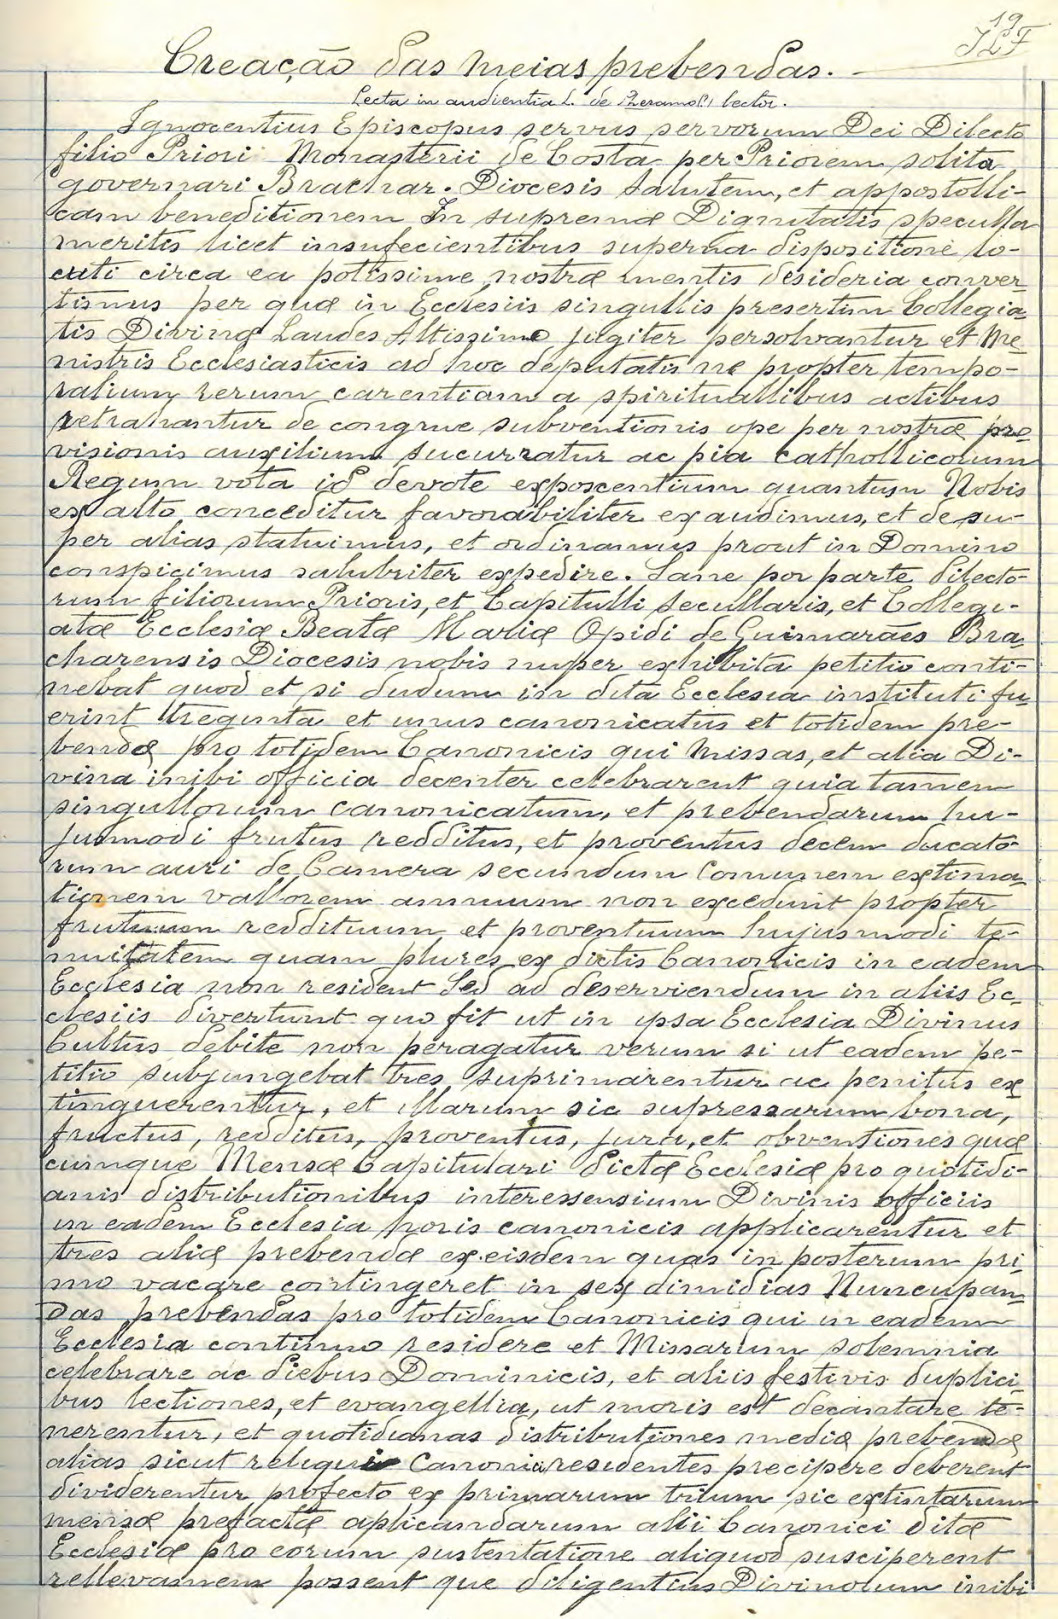 19
JLF
Creação das meias prebendas.
Lecta in audientia L. de lector.
Ignocentius Episcopus servus servorum Dei Dilecto
filio Priori Monasterii de Costa per Priorem solita
governari Brachar. Diocesis Salutem, et appostolli-
cam beneditionem In supremæ Dignitatis speculla
meritis licet insufecientibus superna dispositione lo-
cati circa ea potissime nostræ mentis desideria conver
timus per quæ in Ecclesiis singullis presertim Collegia
tis Divinæ Laudes Altissimo jugiter persolvantur et Me-
nistris Ecclesiasticis ad hoc deputatis ne propter tempo-
ralium rerum carentiam a spirituallibus actibus
retrahantur de congrue subventionis ope per nostræ pro-
visionis auxilium sucurratur ac pia cathollicolum
Regum vota id devote exposcentium quantum Nobis
ex alto conceditur favorabiliter exaudimus, et desu-
per alias statuimus, et ordinamus prout in Domino
conspicimus salubriter expedire. Sane por parte dilecto-
rum filiorum Prioris, et Capitulli secullaris, et Collegi-
atæ Ecclesiæ Beatæ Mariæ Opidi de Guimarães Bra-
charensis Diocesis nobis nuper exhibita petitio conti-
nebat quod et si dudum in dita Ecclesia instituti fu-
erint treginta et unus canonicatus et totidem pre-
bendæ pro totidem Canonicis qui Missas, et alia Di-
vina inibi officia decenter celebrarent quia tamen
singullorum canonicatum, et prebendarum hu-
jusmodi frutus redditus, et proventus decem ducato-
rum auri de Camera secundum Comunem extima-
tionem vallorem annuum non excedunt propter
frutuum reddituum et proventuum hujusmodi te-
nuitatem quam plures ex dictis Canonicis in eadem
Ecclesia non resident Sed ad deserviendum in aliis Ec-
clesiis divertunt quo fit ut in ipsa Ecclesia Divinus
Cultus debite non peragatur verum si ut eadem pe-
titio subjungebat tres suprimarentur ac penitus ex
tinguerentur, et illarum sic supressarum bona,
fructus, redditus, proventus, jura, et obventiones quæ
cumque Mensæ Capitulari dictæ Ecclesiæ pro quotidi-
anis distributionibus interessensium Divinis officiis
in eadem Ecclesia horis canonicis applicarentur et
tres aliæ prebendæ ex eisdem quas in posterum pri-
mo vacare contingeret in sex dimidias Nuncupan-
das prebendas pro totidem Canonicis qui in eadem
Ecclesia continuo residere et Missarum solemnia
celebrare ac diebus Dominicis, et aliis festivis duplici-
bus lectiones, et evangellia, ut moris est decantare te-
nerentur, et quotidianas distributiones mediæ prebendæ
alias sicut reliqui Canonici residentes precipere deberent
dividerentur profecto ex primarum trium sic extintarum
mensæ prefactæ aplicandarum alii Canonici ditæ
Ecclesiæ pro eorum sustentatione aliquod susciperent
rellevamen possent que diligentius Divinolum inibi